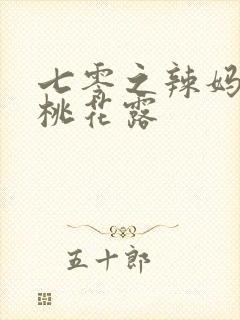 七零之辣妈
桃花露
五十郎